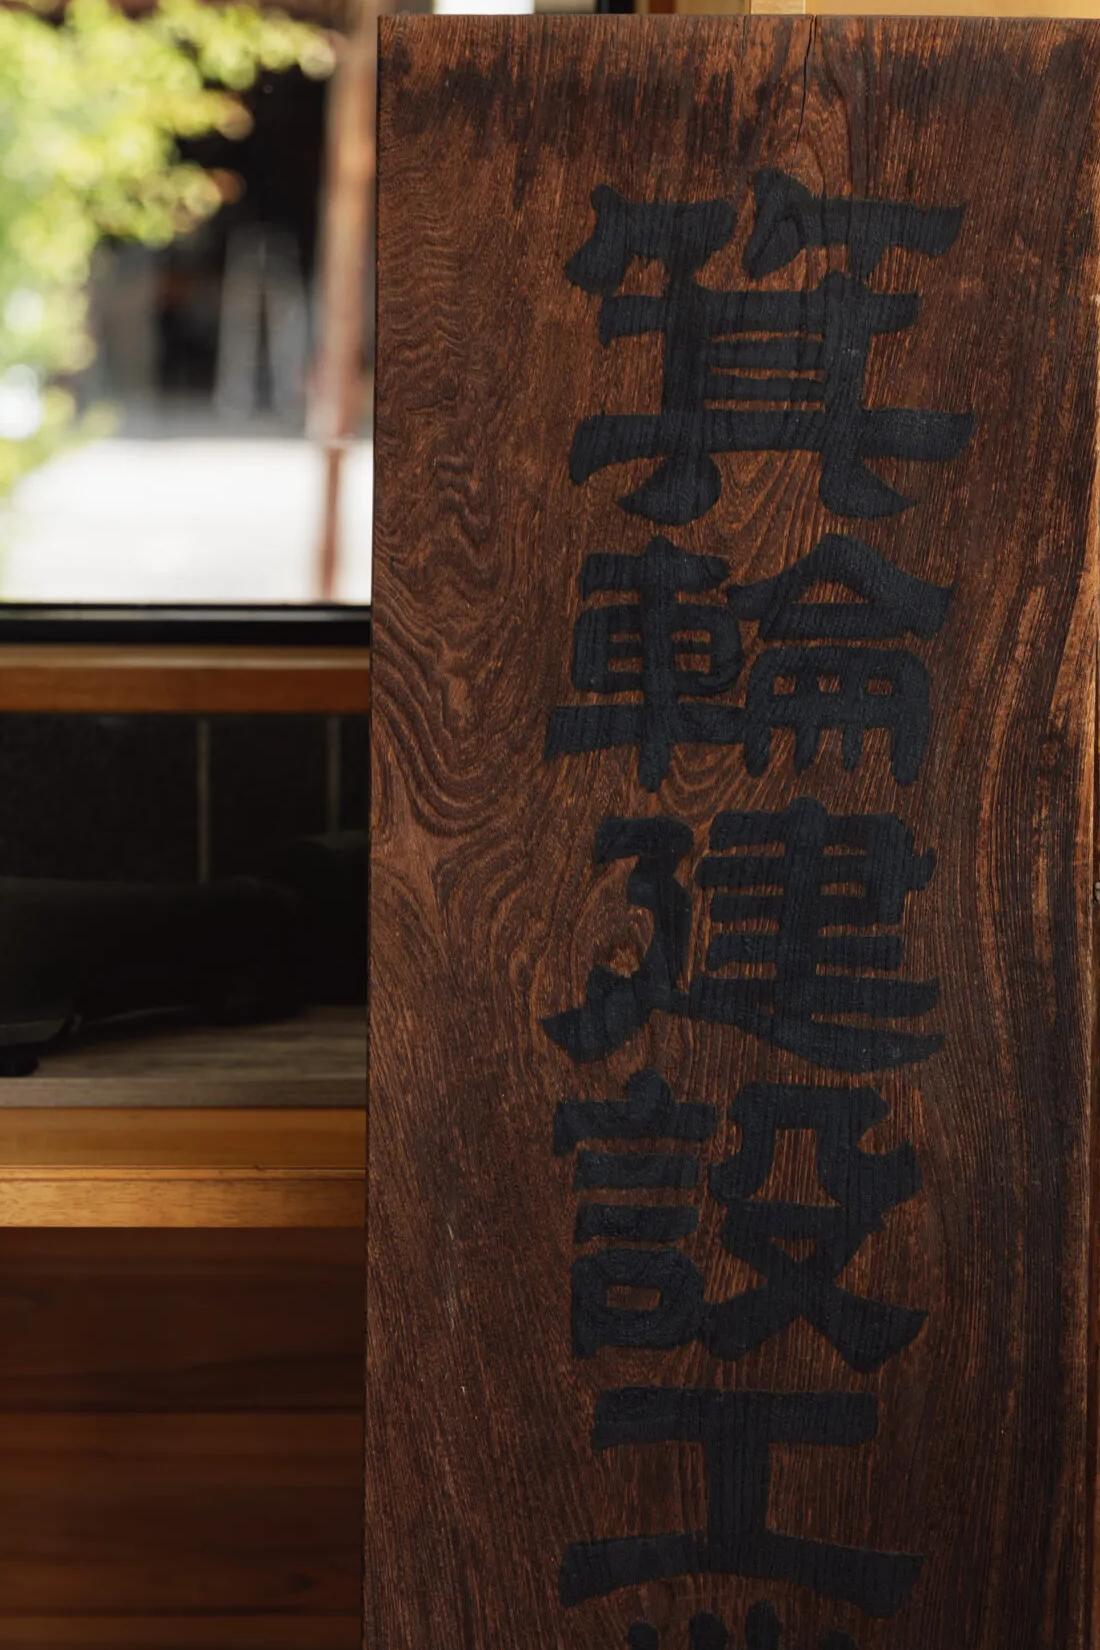 箕輪建設工